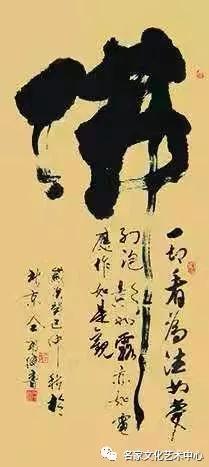 佛
一切有為法如夢
幻泡影如露亦如電
應作如是觀
歲次癸巳中秋於
京
書
名家文化艺术中心